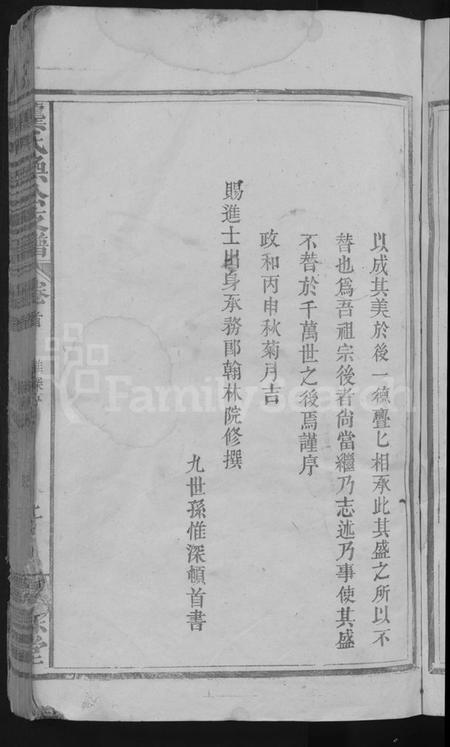 以成其美於後一德疊匕相承此其盛之所以不
替也爲吾祖宗後者尙當繼乃志述乃事使其盛
不替於千萬世之後焉謹序
政和丙申秋菊月吉
賜進士出身承務郎翰林院修撰
九世孫惟深頓首書
氏
公支譜
卷首
堂
FamilySearch